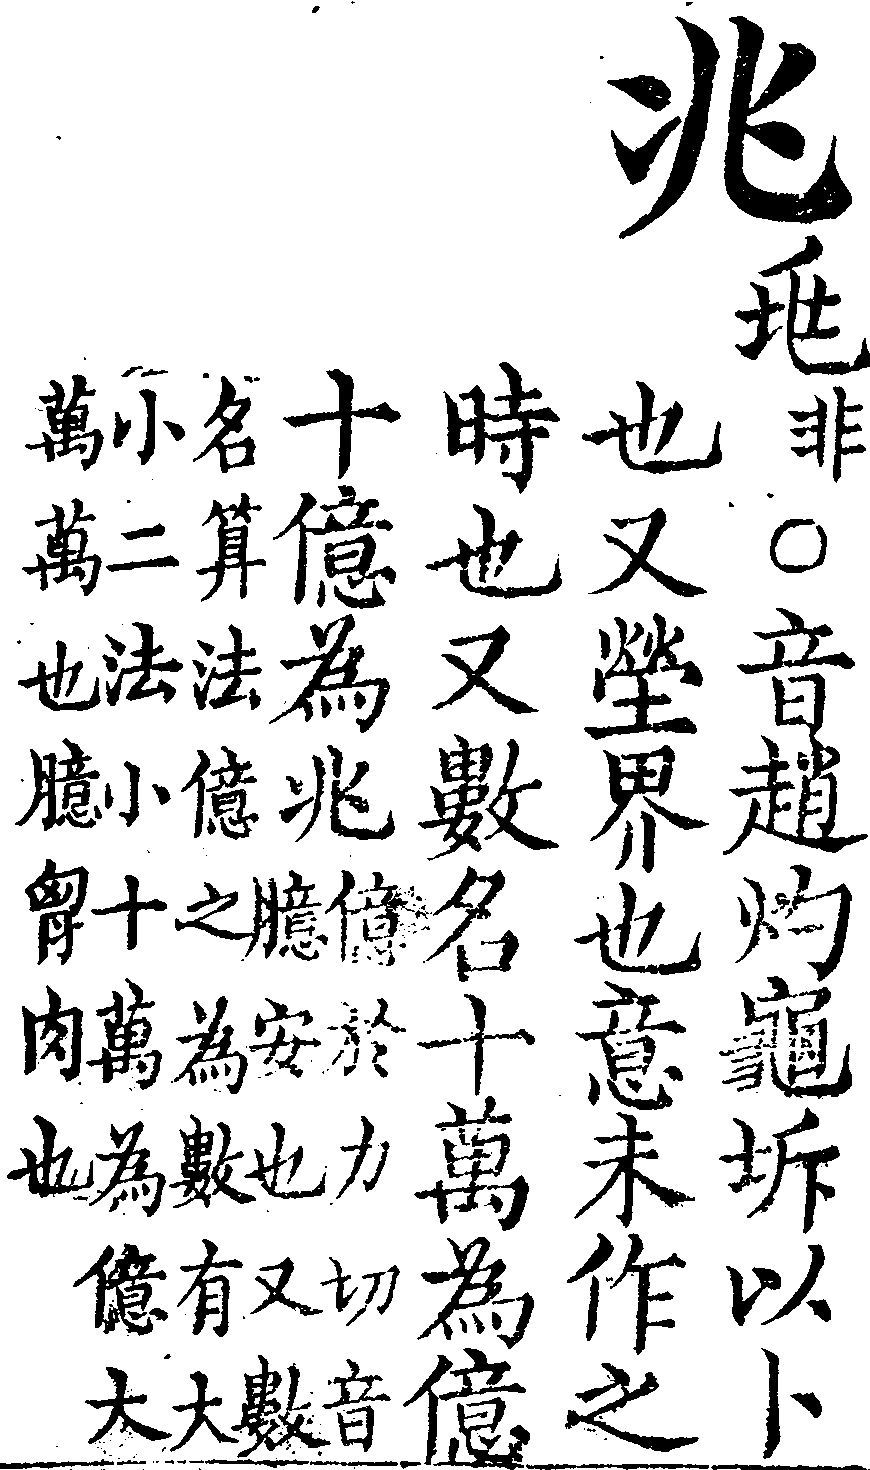 兆
非〇音趙灼龜坼以卜
也又塋界也意未作之
時也又數名十萬為億
十億為兆
億於力切音
臆安也又數
名算法億之為數有大
小二法小十萬為億大
萬萬也臆胷肉也